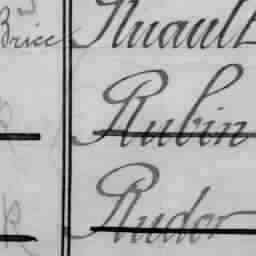 Brice Ruault
Rubin
Rudor